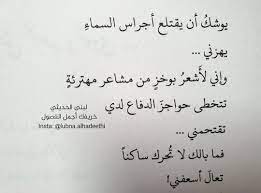 يوشكُ أن يقتلع أجراس السماءِ
يهزني ...
وإني لَأشعرُ بوخزٍ من مشاعر مهترئةٍ
تتخطى حواجزَ الدفاع لدي
تقتحمني ...
فما بالك لا تُحرك ساكناً
تعالَ أسعفني!
لبنى الحديثي
خريفك أجمل الفصول
Insta: @lubna.alhadeethi